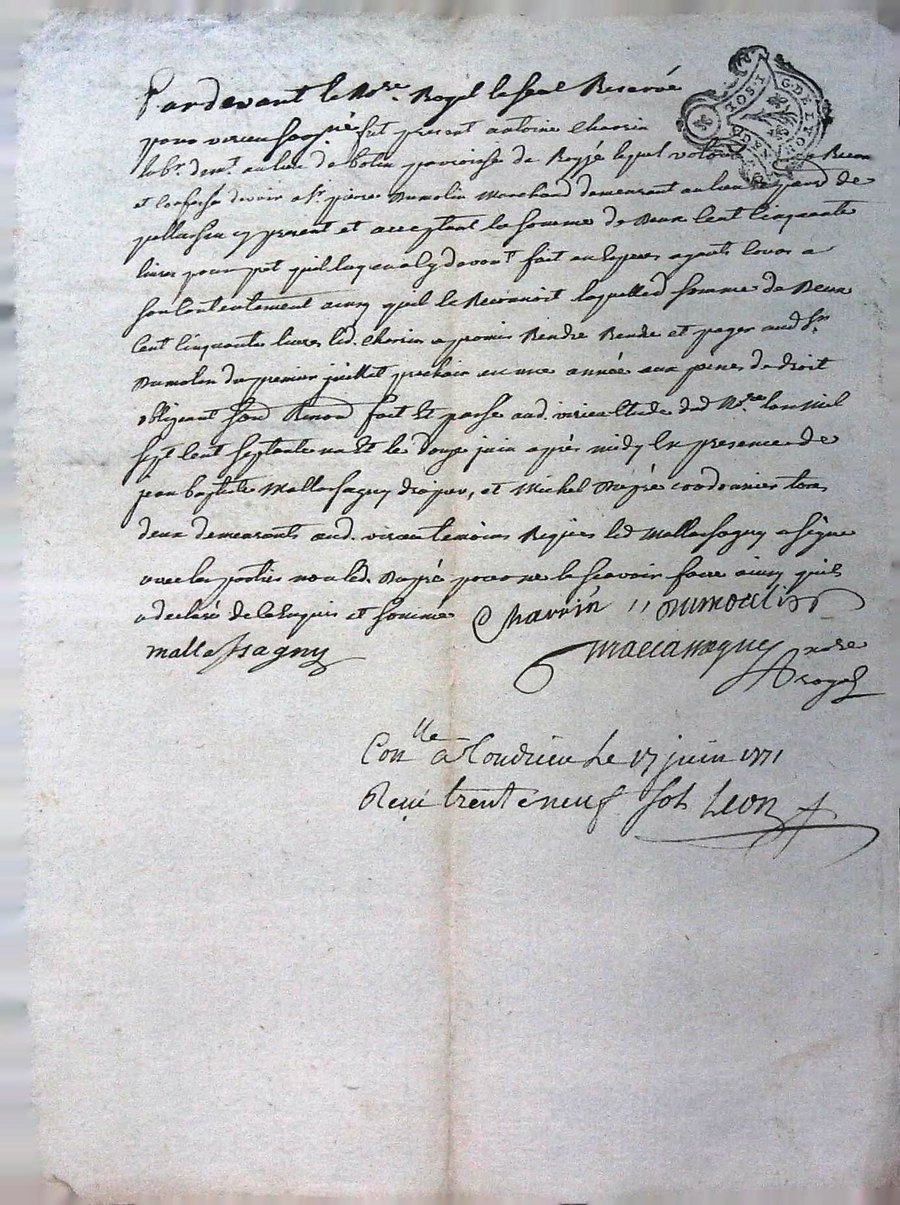 Pardevant le No.re Royal le seul Reservé
pour virieu soussigné fut present antoine Charrin
lab.r dem.t au lieu de botin parroisse de Royzé lequel volon Recon
et confesse devoir a S.r pierre Dumolin Marchand demeurant au lieu de
pellassin cy present et acceptant la somme de Deux Cent Cinquante
livres pour pret quil luy en a cy devant fait en especes ayants cours a
son Contentement ainsy quil le Reconnoit laquelle d. somme de Deux
Cent Cinquante livres led. Charrin a promis Rendre Rendre et payer aud S.r
Dumolin du premier juillet prochain en une année aux peines de droit
obligeant Sou Renon fait et passé aud. virieu etude dud No.re lan mil
sept Cent septante un et le douze juin après midy En presence de
jean baptiste Mallassagny drapier, et Michel Dupré cordonnier tous
deux demeurants aud. virieu temoins Requis led Mallassagny a signé
avec les parties non led. Dupré pour ne le scavoir faire ainsy quil
a declaré de ce Enquis et sommé Charrin Dumoulin
mallassagny
no.re
royal
Con.lle a Condrieu Le 17 juin 1771
Reçu trente neuf sols Leon